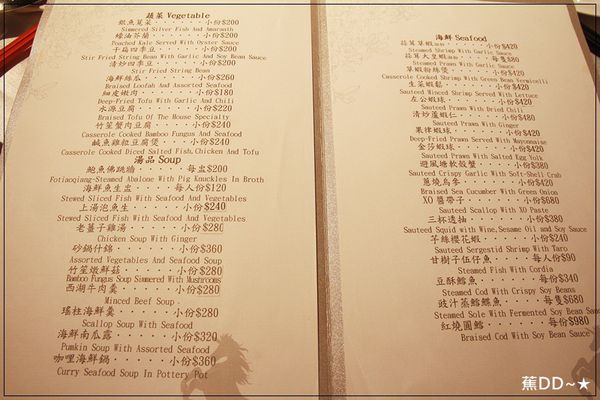 蔬菜 Vegetable
銀魚莧菜·····小份$200
Simmered Silver Fish And Amaranth
蠔油芥蘭·····小份$200
Poached Kale Served With Oyster Sauce
干扁四季豆····小份$200
Stir Fried String Bean With Garlic And Soy Bean Sauce
清炒四季豆····小份$200
Stir Fried String Bean
海鮮絲瓜·····小份$260
Braised Loofah And Assorted Seafood
細皮嫩肉·····小份$180
Deep-Fried Tofu With Garlic And Chili
水源豆腐·····小份$220
Braised Tofu Of The House Specialty
竹笙蟹肉豆腐···小份$240
Casserole Cooked Bamboo Fungus And Seafood
鹹魚雞粒豆腐煲··小份$240
Casserole Cooked Diced Salted Fish,Chicken And Tofu
湯品 Soup
鮑魚佛跳牆·····每盅$200
Fotiaoqiang-Steamed Abalone With Pig Knuckles In Broth
海鮮魚生盅····每人份$120
Stewed Sliced Fish With Seafood And Vegetables
上湯泡魚生····小份$240
Stewed Sliced Fish With Seafood And Vegetables
老薑子雞湯····小份$280
Chicken Soup With Ginger
砂鍋什錦·····小份$360
Assorted Vegetables And Seafood Soup
竹笙燉鮮菇····小份$280
Bamboo Fungus Soup Simmered With Mushrooms
西湖牛肉羹····小份$280
Minced Beef Soup
瑤柱海鮮羹····小份$280
Scallop Soup With Seafood
海鮮南瓜露····小份$320
Pumkin Soup With Assorted Seafood
咖哩海鮮鍋····小份$360
Curry Seafood Soup In Pottery Pot
海鮮 Seafood
蒜茸草蝦·····小份$420
Steamed Shrimp With Garlic Sauce
蒜茸大皇蝦····每隻$80
Steamed Prawn With Garlic Sauce
草蝦粉絲煲····小份$420
Casserole Cooked Shrimp With Green Bean Vermicelli
生菜蝦鬆·····小份$420
Sauteed Minced Shrimp Served With Lettuce
左公蝦球·····小份$420
Sauteed Prawn With Dried Chili
清炒蘆蝦仁····小份$480
Sauteed Prawn With Ginger
果律蝦球·····小份$420
Deep-Fried Prawn Served With Mayonnaise
金莎蝦球·····小份$420
Sauteed Prawn With Salted Egg Yolk
避風塘軟殼蟹···小份$380
Sauteed Crispy Garlic With Soft-Shell Crab
蔥燒烏參·····小份$420
Braised Sea Cucumber With Green Onion
XO醬帶子·····小份$680
Sauteed Scallop With XO Paste
三杯透抽·····小份$380
Sauteed Squid with Wine,Sesame Oil and Soy Sauce
芋絲櫻花蝦····小份$240
Sauteed Sergestid Shrimp With Taro
甘樹子伍仔魚···每人份$90
Steamed Fish With Cordia
豆酥鱈魚·····每份$340
Steamed Cod With Crispy Soy Beans
豉汁蒸鰈魚····每隻$680
Steamed Sole With Fermented Soy Bean Sauce
紅燒圓鱈·····每份$980
Braised Cod With Soy Bean Sauce
蕉DD~★